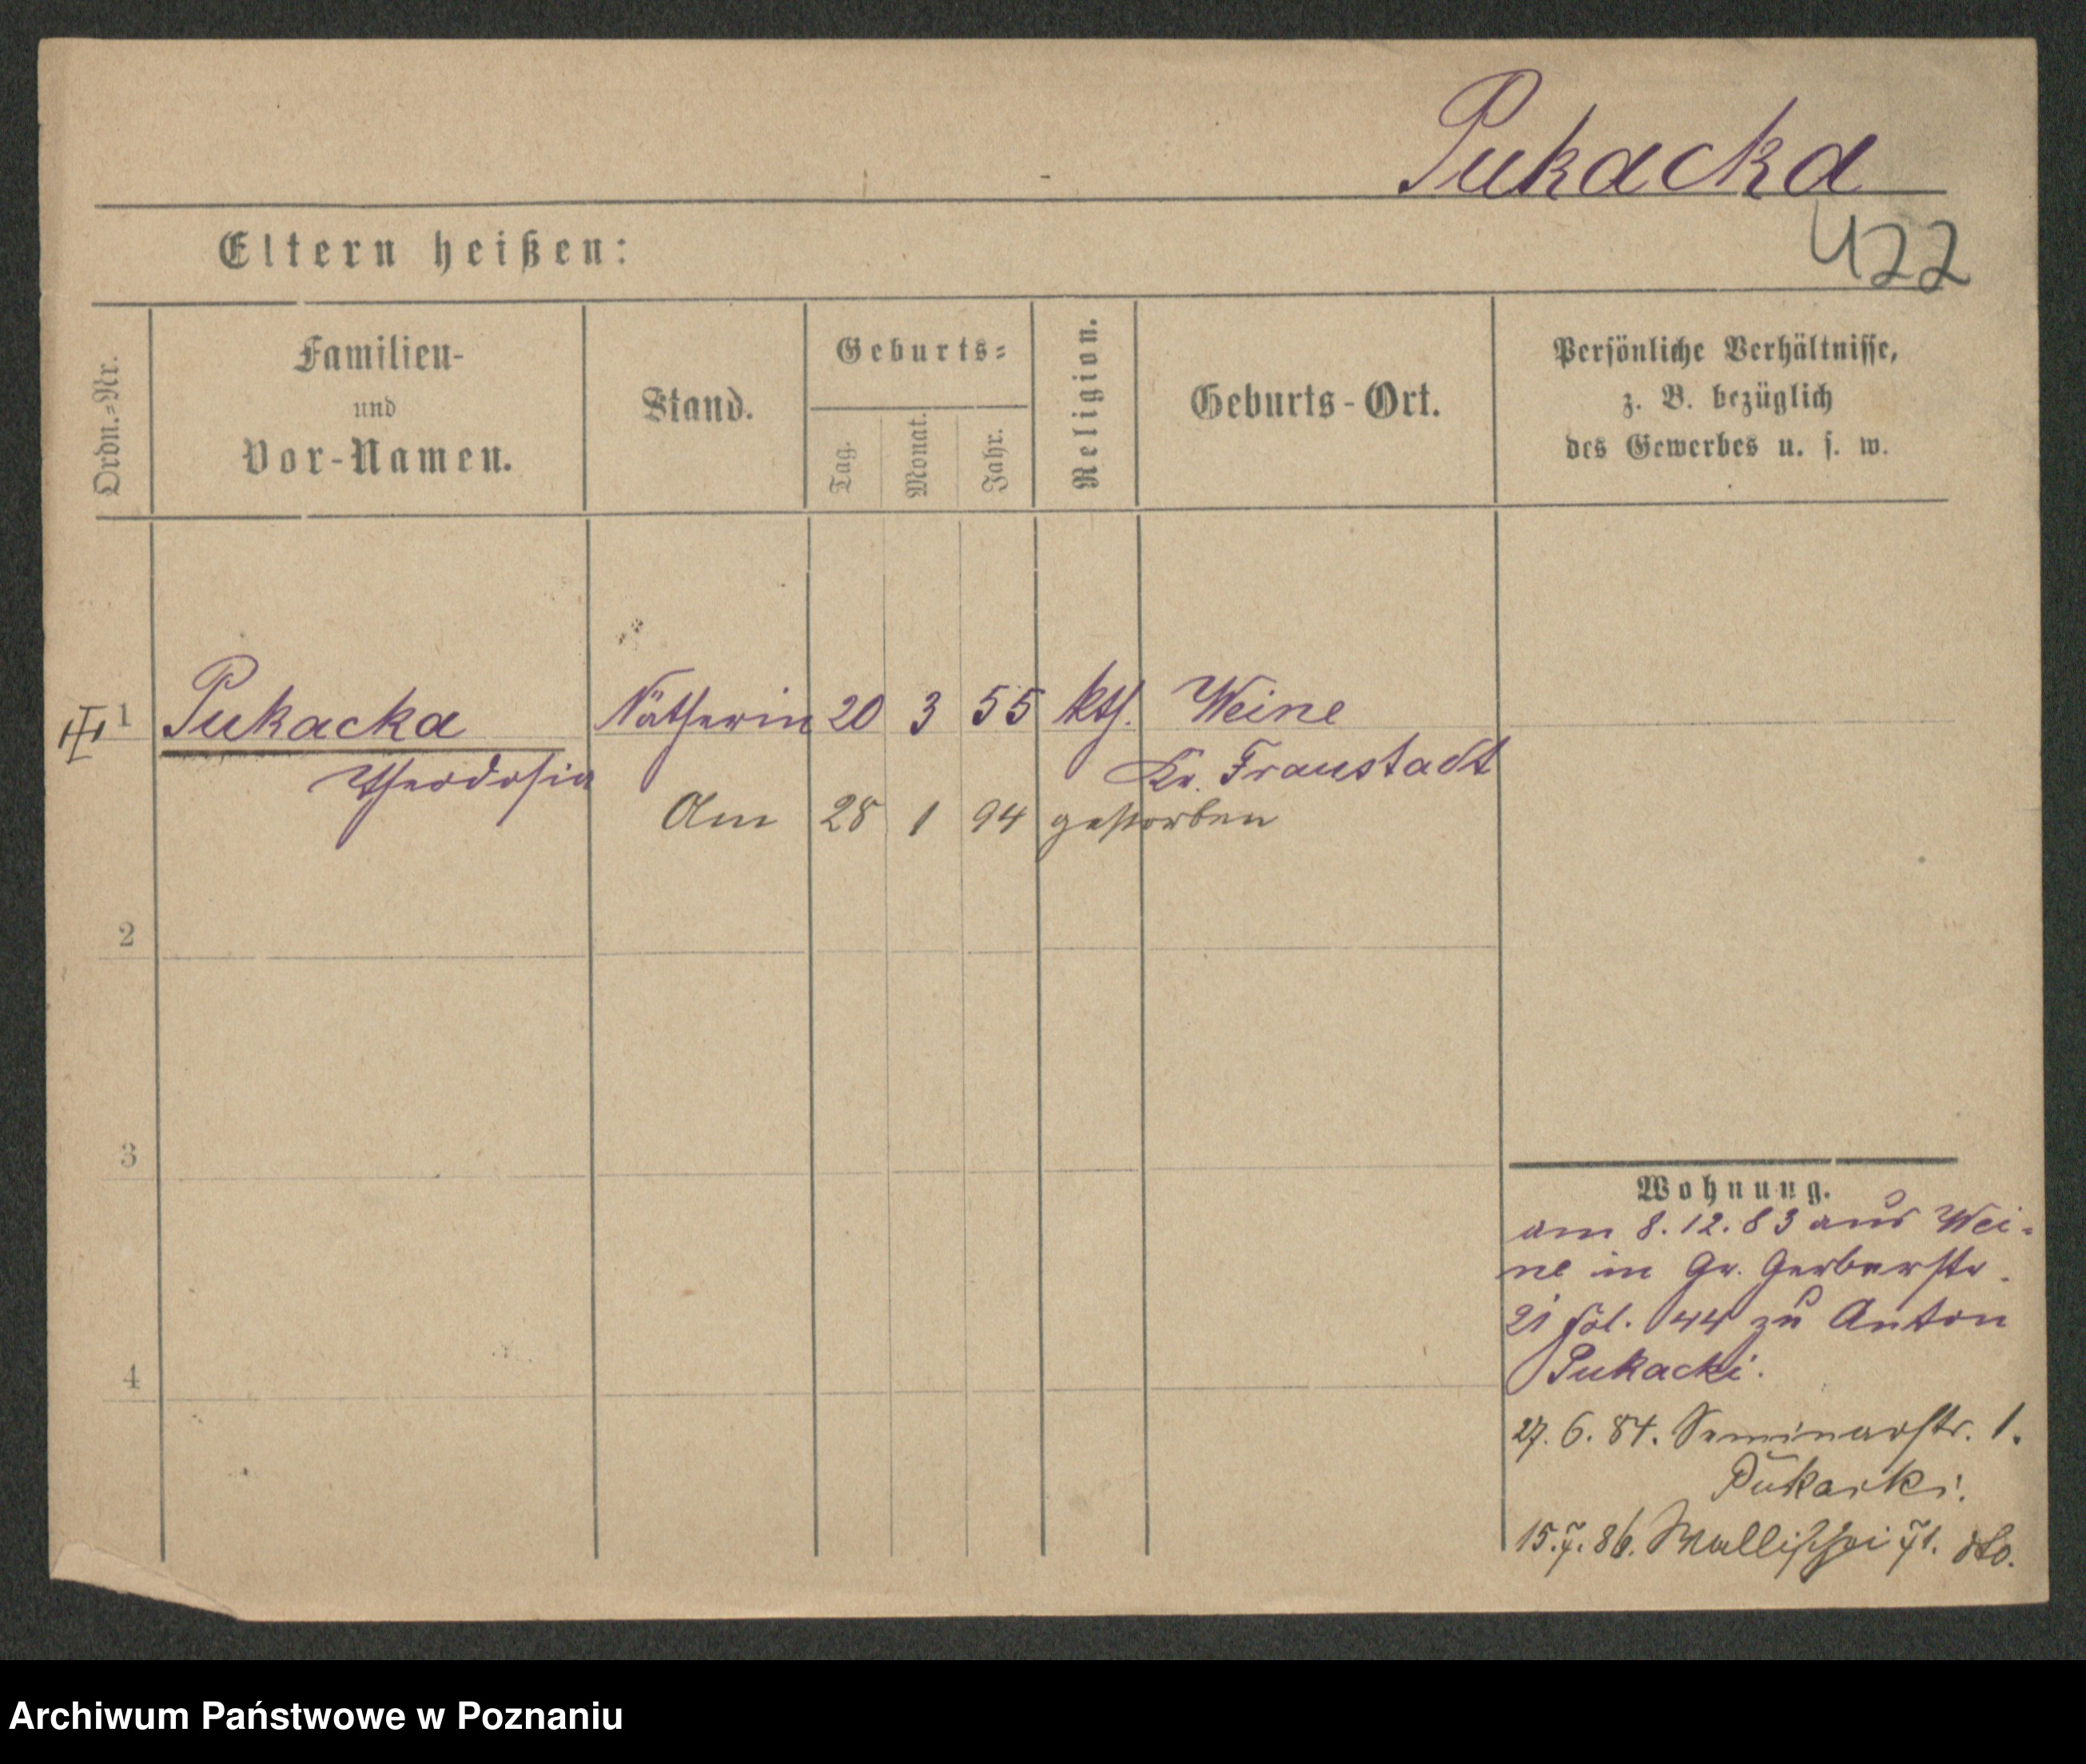 Pukacka
422
Eltern heißen:
Ordn.=Nr.
Familien-
und
Vor-Namen.
Stand.
Geburts=
Tag.
Monat.
Jahr.
Religion.
Geburts-Ort.
Persönliche Verhältnisse,
z. B. bezüglich
des Gewerbes u. s. w.
1 Pukacka Nätherin 20 3 55 kth. Weine
Theodosia Kr. Fraustadt
Am 28 1 94 gestorben
2
3
4
Wohnung.
am 8.12.83 aus Wei-
ne in Gr. Gerberstr.
21 fol. 44 zu Anton
Pukacki.
27. 6. 84. Seminarstr. 1.
Pukacki.
15.7.86. Wallischei 71. dto.
Archiwum Państwowe w Poznaniu